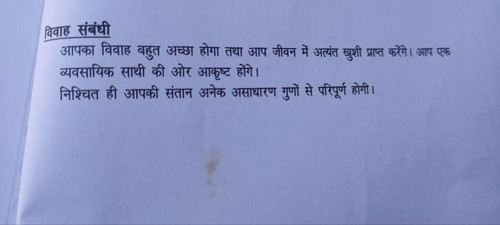 विवाह संबंधी
आपका विवाह बहुत अच्छा होगा तथा आप जीवन में अत्यंत खुशी प्राप्त करेंगे। आप एक
व्यवसायिक साथी की ओर आकृष्ट होंगे।
निश्चित ही आपकी संतान अनेक असाधारण गुणों से परिपूर्ण होगी।